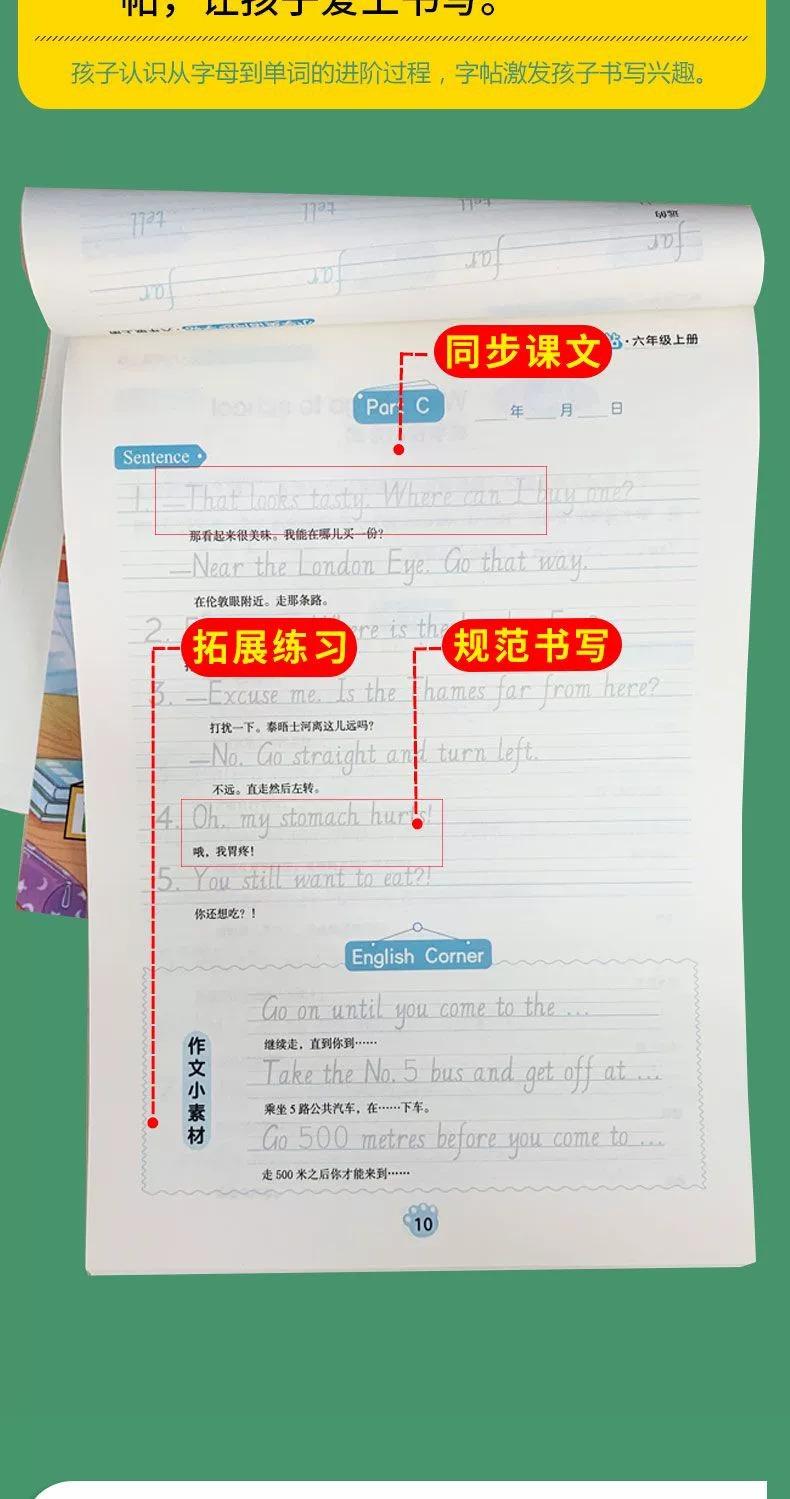 帖，让孩子爱上书写。
孩子认识从字母到单词的进阶过程，字帖激发孩子书写兴趣。
tell tell tell
far far far far
·六年级上册
同步课文
Part C
年 月 日
Sentence
1. —That looks tasty. Where can I buy one?
那看起来很美味。我能在哪儿买一份?
—Near the London Eye. Go that way.
在伦敦眼附近。走那条路。
2. is the
拓展练习
规范书写
3. —Excuse me. Is the Thames far from here?
打扰一下。泰晤士河离这儿远吗?
—No. Go straight and turn left.
不远。直走然后左转。
4. Oh, my stomach hurts!
哦，我胃疼!
5. You still want to eat?!
你还想吃?!
English Corner
作文小素材
Go on until you come to the ...
继续走，直到你到……
Take the No. 5 bus and get off at ...
乘坐 5 路公共汽车，在……下车。
Go 500 metres before you come to ...
走 500 米之后你才能来到……
10